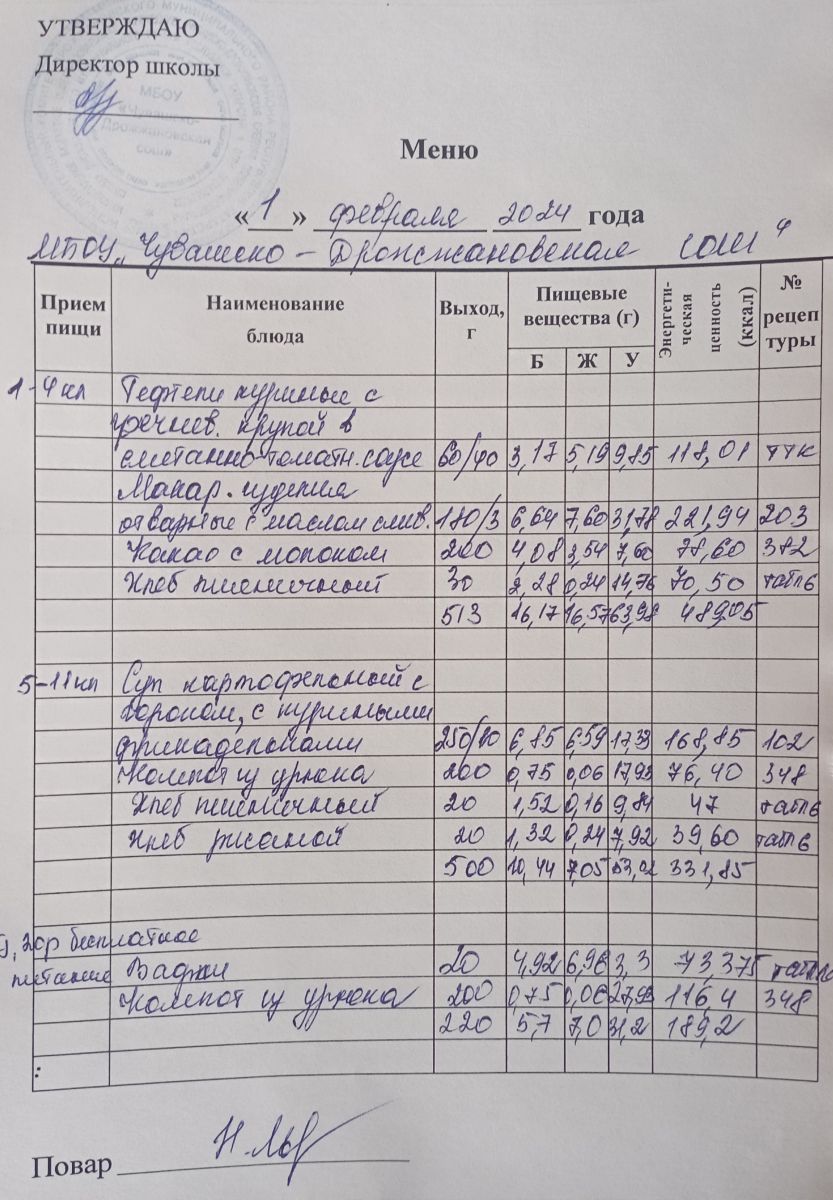 УТВЕРЖДАЮ
Директор школы
МБОУ
«Чувашско-
Дрожжановская
сош»
Меню
« 1 » февраля 2024 года
МБОУ „Чувашско - Дрожжановская СОШ"
Прием пищи Наименование блюда Выход, г Пищевые вещества (г) Б Ж У Энергети-ческая ценность (ккал) № рецеп туры
1-4 кл Тефтели куриные с
гречнев. крупой в
сметанно-томатн. соусе 60/40 3,17 5,19 9,85 118,01 ТТК
Макар. изделия
отварные с маслом слив. 180/3 6,64 7,60 31,78 221,94 203
Какао с молоком 200 4,08 3,54 7,60 78,60 382
Хлеб пшеничный 30 2,28 0,24 14,76 70,50 табл6
513 16,17 16,57 63,98 489,05
5-11 кл Суп картофельный с
горохом, с куриными
фрикадельками 250/10 6,85 6,59 17,33 168,85 102
Компот из урюка 200 0,75 0,06 17,93 76,40 348
Хлеб пшеничный 20 1,52 0,16 9,84 47 табл6
Хлеб ржаной 20 1,32 0,24 7,92 39,60 табл6
500 10,44 7,05 53,02 331,85
бесплатное
питание Вафли 20 4,92 6,96 3,3 73,375 табл6
Компот из урюка 200 0,75 0,06 27,93 116,4 348
220 5,7 7,0 31,2 189,2
:
Повар